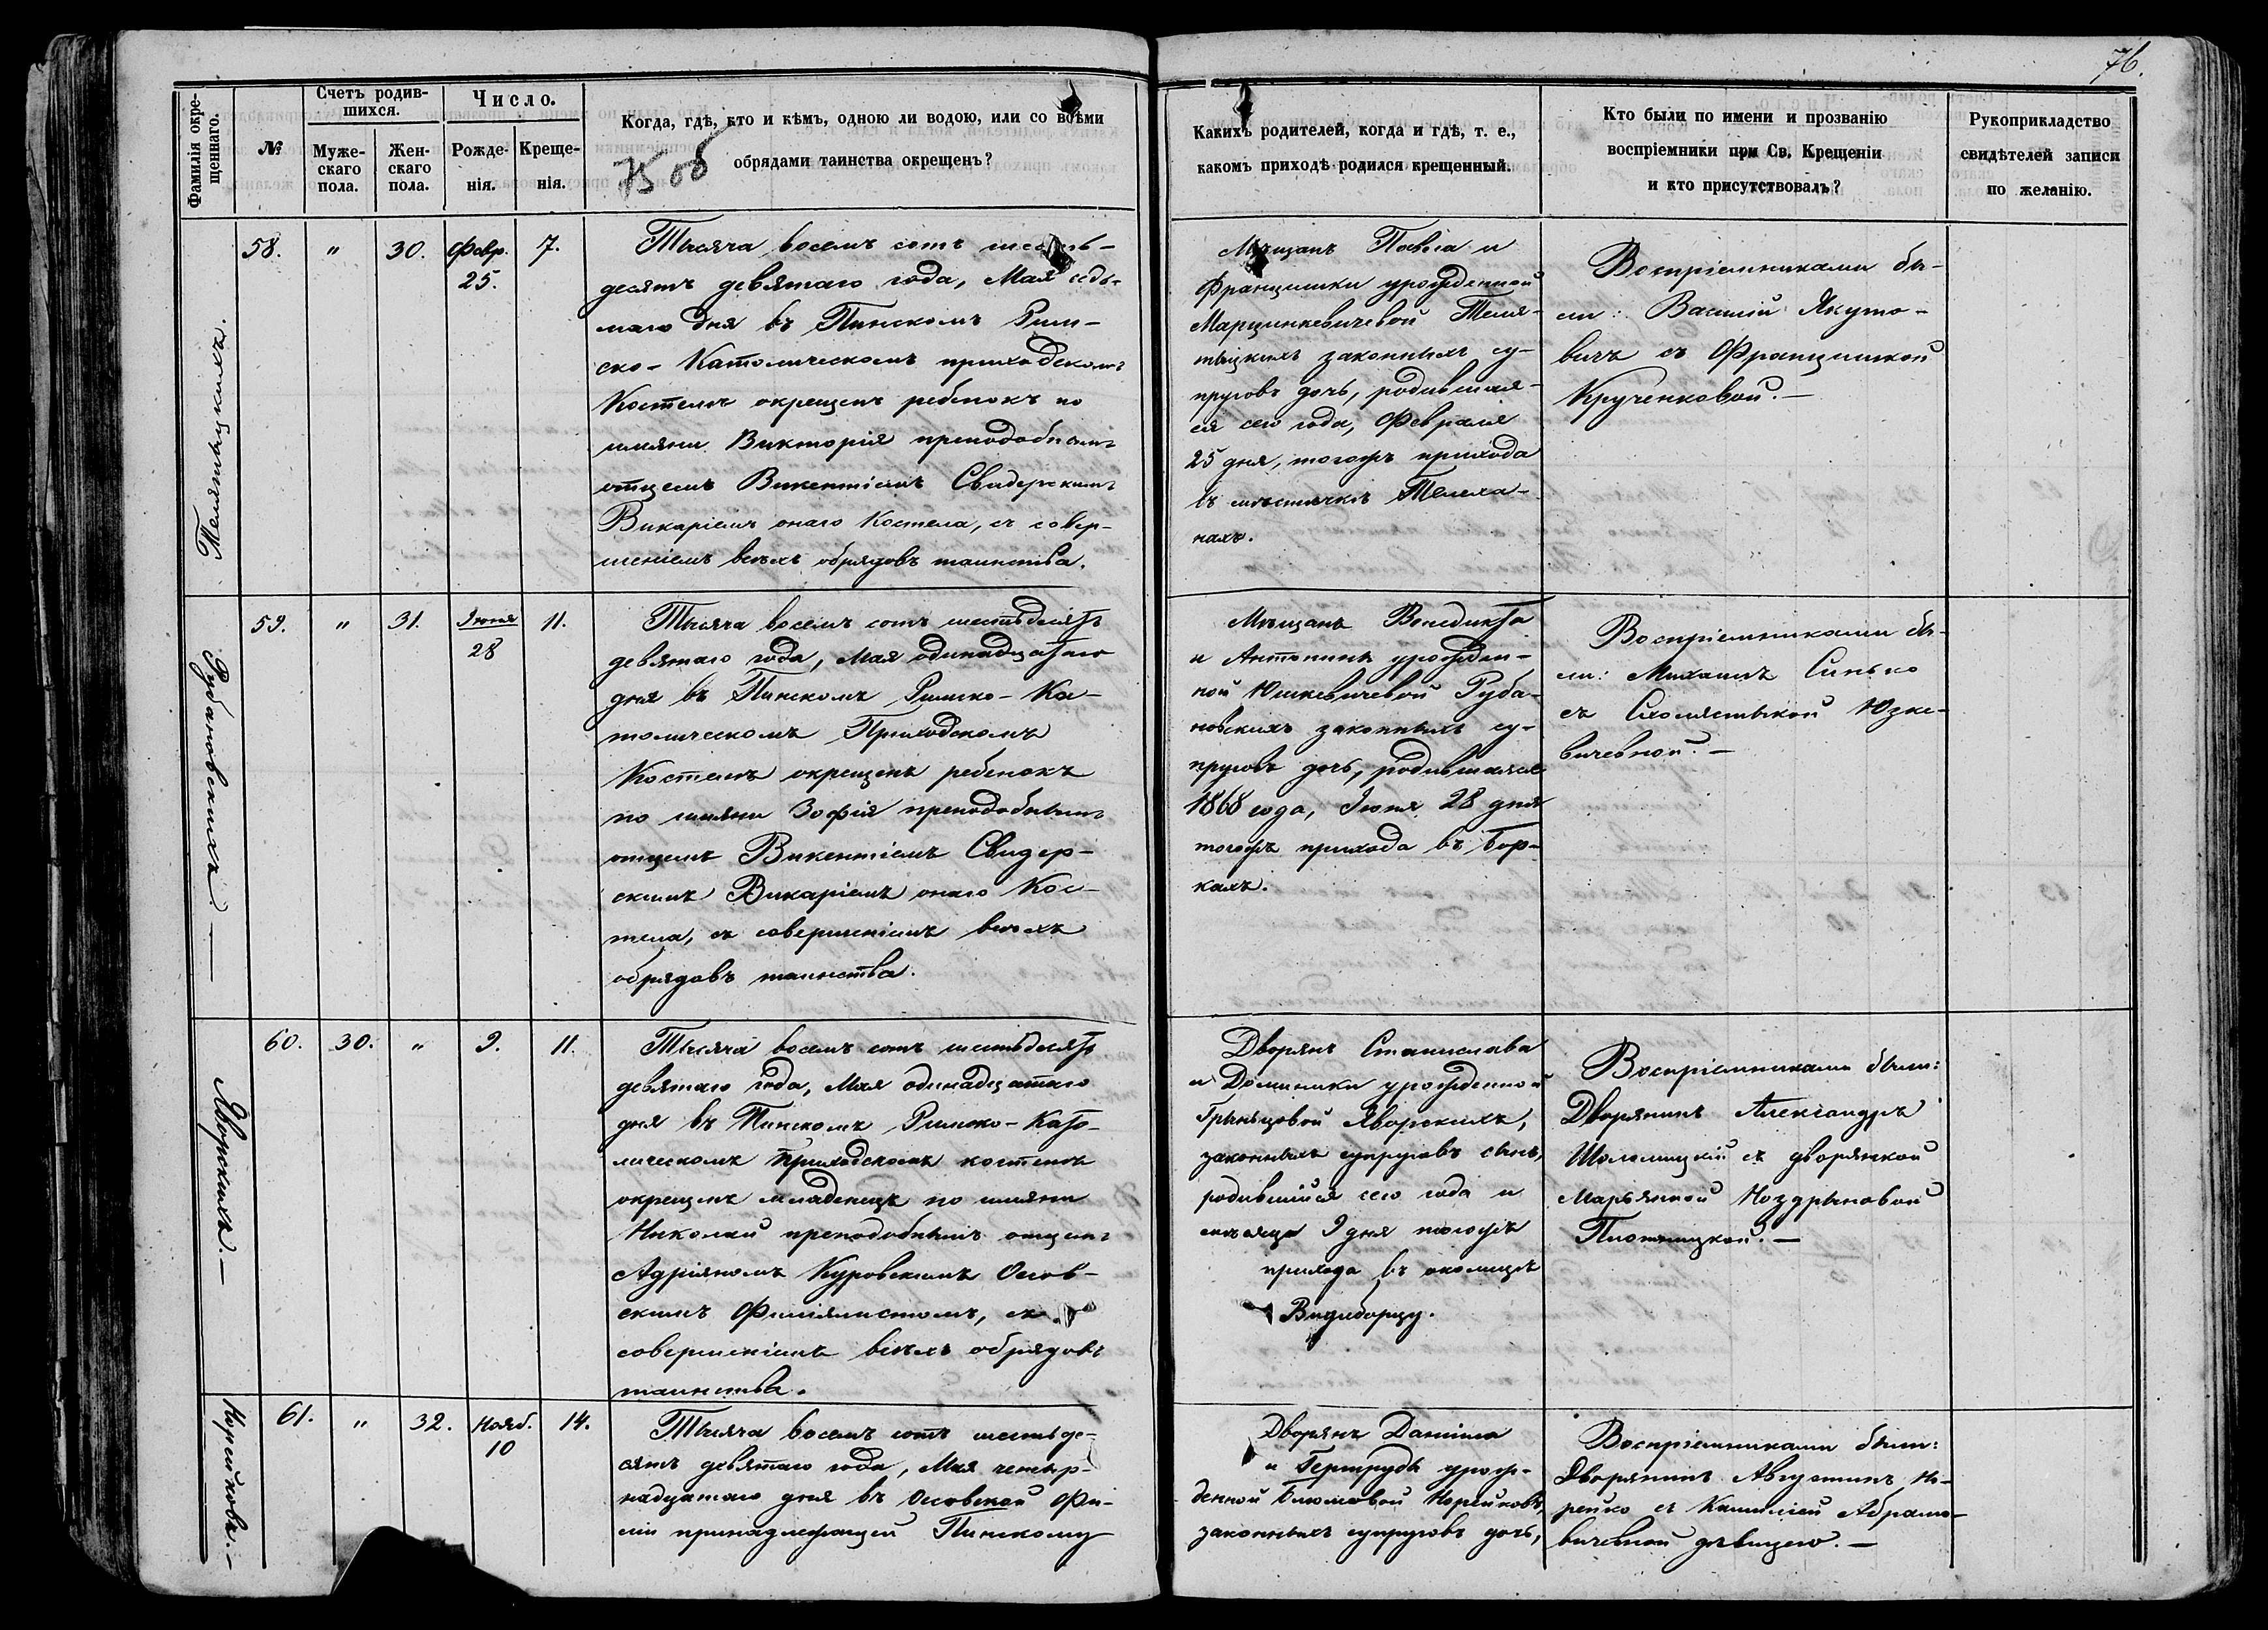 76.
Фамилія окре-
щеннаго.
№
Счетъ родив-
шихся.
Муже-
скаго
пола.
Жен-
скаго
пола.
Число.
Рожде-
нія.
Креще-
нія.
Когда, гдѣ, кто и кѣмъ, одною ли водою, или со всѣми
обрядами таинства окрещенъ?
75 об
Какихъ родителей, когда и гдѣ, т. е.,
какомъ приходѣ родился крещенный.
Кто были по имени и прозванію
воспріемники при Св. Крещеніи
и кто присутствовалъ?
Рукоприкладство
свидѣтелей записи
по желанію.
Телятыцкихъ.
58.
"
30.
Февр.
25.
7.
Тысяча восемъ сотъ шесть-
десятъ девятаго года, Мая седь-
маго дня въ Пинскомъ Рим-
ско-Католическомъ приходскомъ
Костелѣ окрещенъ ребенокъ по
имяни Викторія преподобнымъ
отцемъ Викентіемъ Свидерскимъ
Викаріемъ онаго Костела, съ совер-
шеніемъ всѣхъ обрядовъ таинства.
Мѣщанъ Павла и
Францишки урожденной
Марцинкевичевой Теля-
тыцкихъ законныхъ су-
пруговъ дочь, родившая-
ся сего года, Февраля
25 дня, тогожъ прихода
въ мѣстечкѣ Телеха-
нахъ.
Воспріемниками бы-
ли: Василій Якуто-
вичъ съ Францишкой
Крученковой.—
Рубановскихъ.—
59.
"
31.
Іюня
28
11.
Тысяча восемъ сотъ шестьдесятъ
девятаго года, Мая одинадцатаго
дня въ Пинскомъ Римско-Ка-
толическомъ Приходскомъ
Костелѣ окрещенъ ребенокъ
по имяни Зофія преподобнымъ
отцемъ Викентіемъ Свидер-
скимъ Викаріемъ онаго Кос-
тела, съ совершеніемъ всѣхъ
обрядовъ таинства.
Мѣщанъ Венедикта
и Антонины урожден-
ной Юшкевичевой Руба-
новскихъ законныхъ су-
пруговъ дочь, родившаяся
1868 года, Іюня 28 дня
тогожъ прихода въ Бор-
кахъ.
Воспріемниками бы-
ли: Михаилъ Синько
съ Схолястыкой Юзке-
вичевной.—
Яворскихъ.—
60.
30.
"
9.
11.
Тысяча восемъ сотъ шестьдесятъ
девятаго года, Мая одинадцатаго
дня въ Пинскомъ Римско-Като-
лическомъ Приходскомъ костелѣ
окрещенъ младенецъ по имяни
Николай преподобнымъ отцемъ
Адріяномъ Куровскимъ Осов-
скимъ Филіялистомъ, съ
совершеніемъ всѣхъ обрядовъ
таинства.
Дворянъ Станислава
и Доминики урожденной
Грыньцовой Яворскихъ,
законныхъ супруговъ сынъ,
родившійся сего года и
мѣсяца 9 дня тогожъ
прихода въ околицѣ
Видиборцу.
Воспріемниками были:
Дворянинъ Александръ
Шоломицкій съ дворянкой
Марьянной Ноздрыновой
Плотницкой.—
Норейковъ.—
61.
"
32.
Нояб.
10
14.
Тысяча восемъ сотъ шестьде-
сятъ девятаго года, Мая четыр-
надцатаго дня въ Осовской Фи-
ліи принадлежащей Пинскому
Дворянъ Даніила
и Гертруды урож-
денной Блюмовой Норейковъ,
законныхъ супруговъ дочь,
Воспріемниками были:
Дворянинъ Августинъ Но-
рейко съ Камиліей Абрамо-
вичевной дѣвицею.—